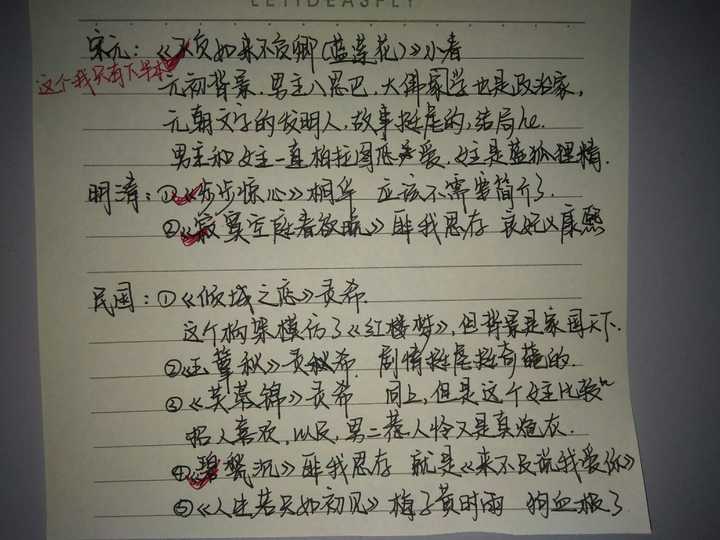 LETIDEASFLY
宋元：《不负如来不负卿（蓝莲花）》小春
这个我只有下半本
元初背景，男主八思巴，大佛学家也是政治家，
元朝文字的发明人，故事挺虐的，结局he.
男主和女主一直柏拉图恋爱，女主是蓝狐狸精.
明清：①《步步惊心》桐华 应该不需要简介了.
②《寂寞空庭春欲晚》匪我思存 良妃X康熙
民国：①《倾城之恋》贡希.
这个构架模仿了《红楼梦》，但背景是家国天下.
②《玉簟秋》灵希 剧情挺虐挺奇葩的.
③《芙蓉锦》灵希 同上，但是这个女主比较
招人喜欢，以及，男二惹人怜又是真炮灰.
④《碧甃沉》匪我思存 就是《来不及说我爱你》
⑤《人生若只如初见》梅子黄时雨 狗血极了